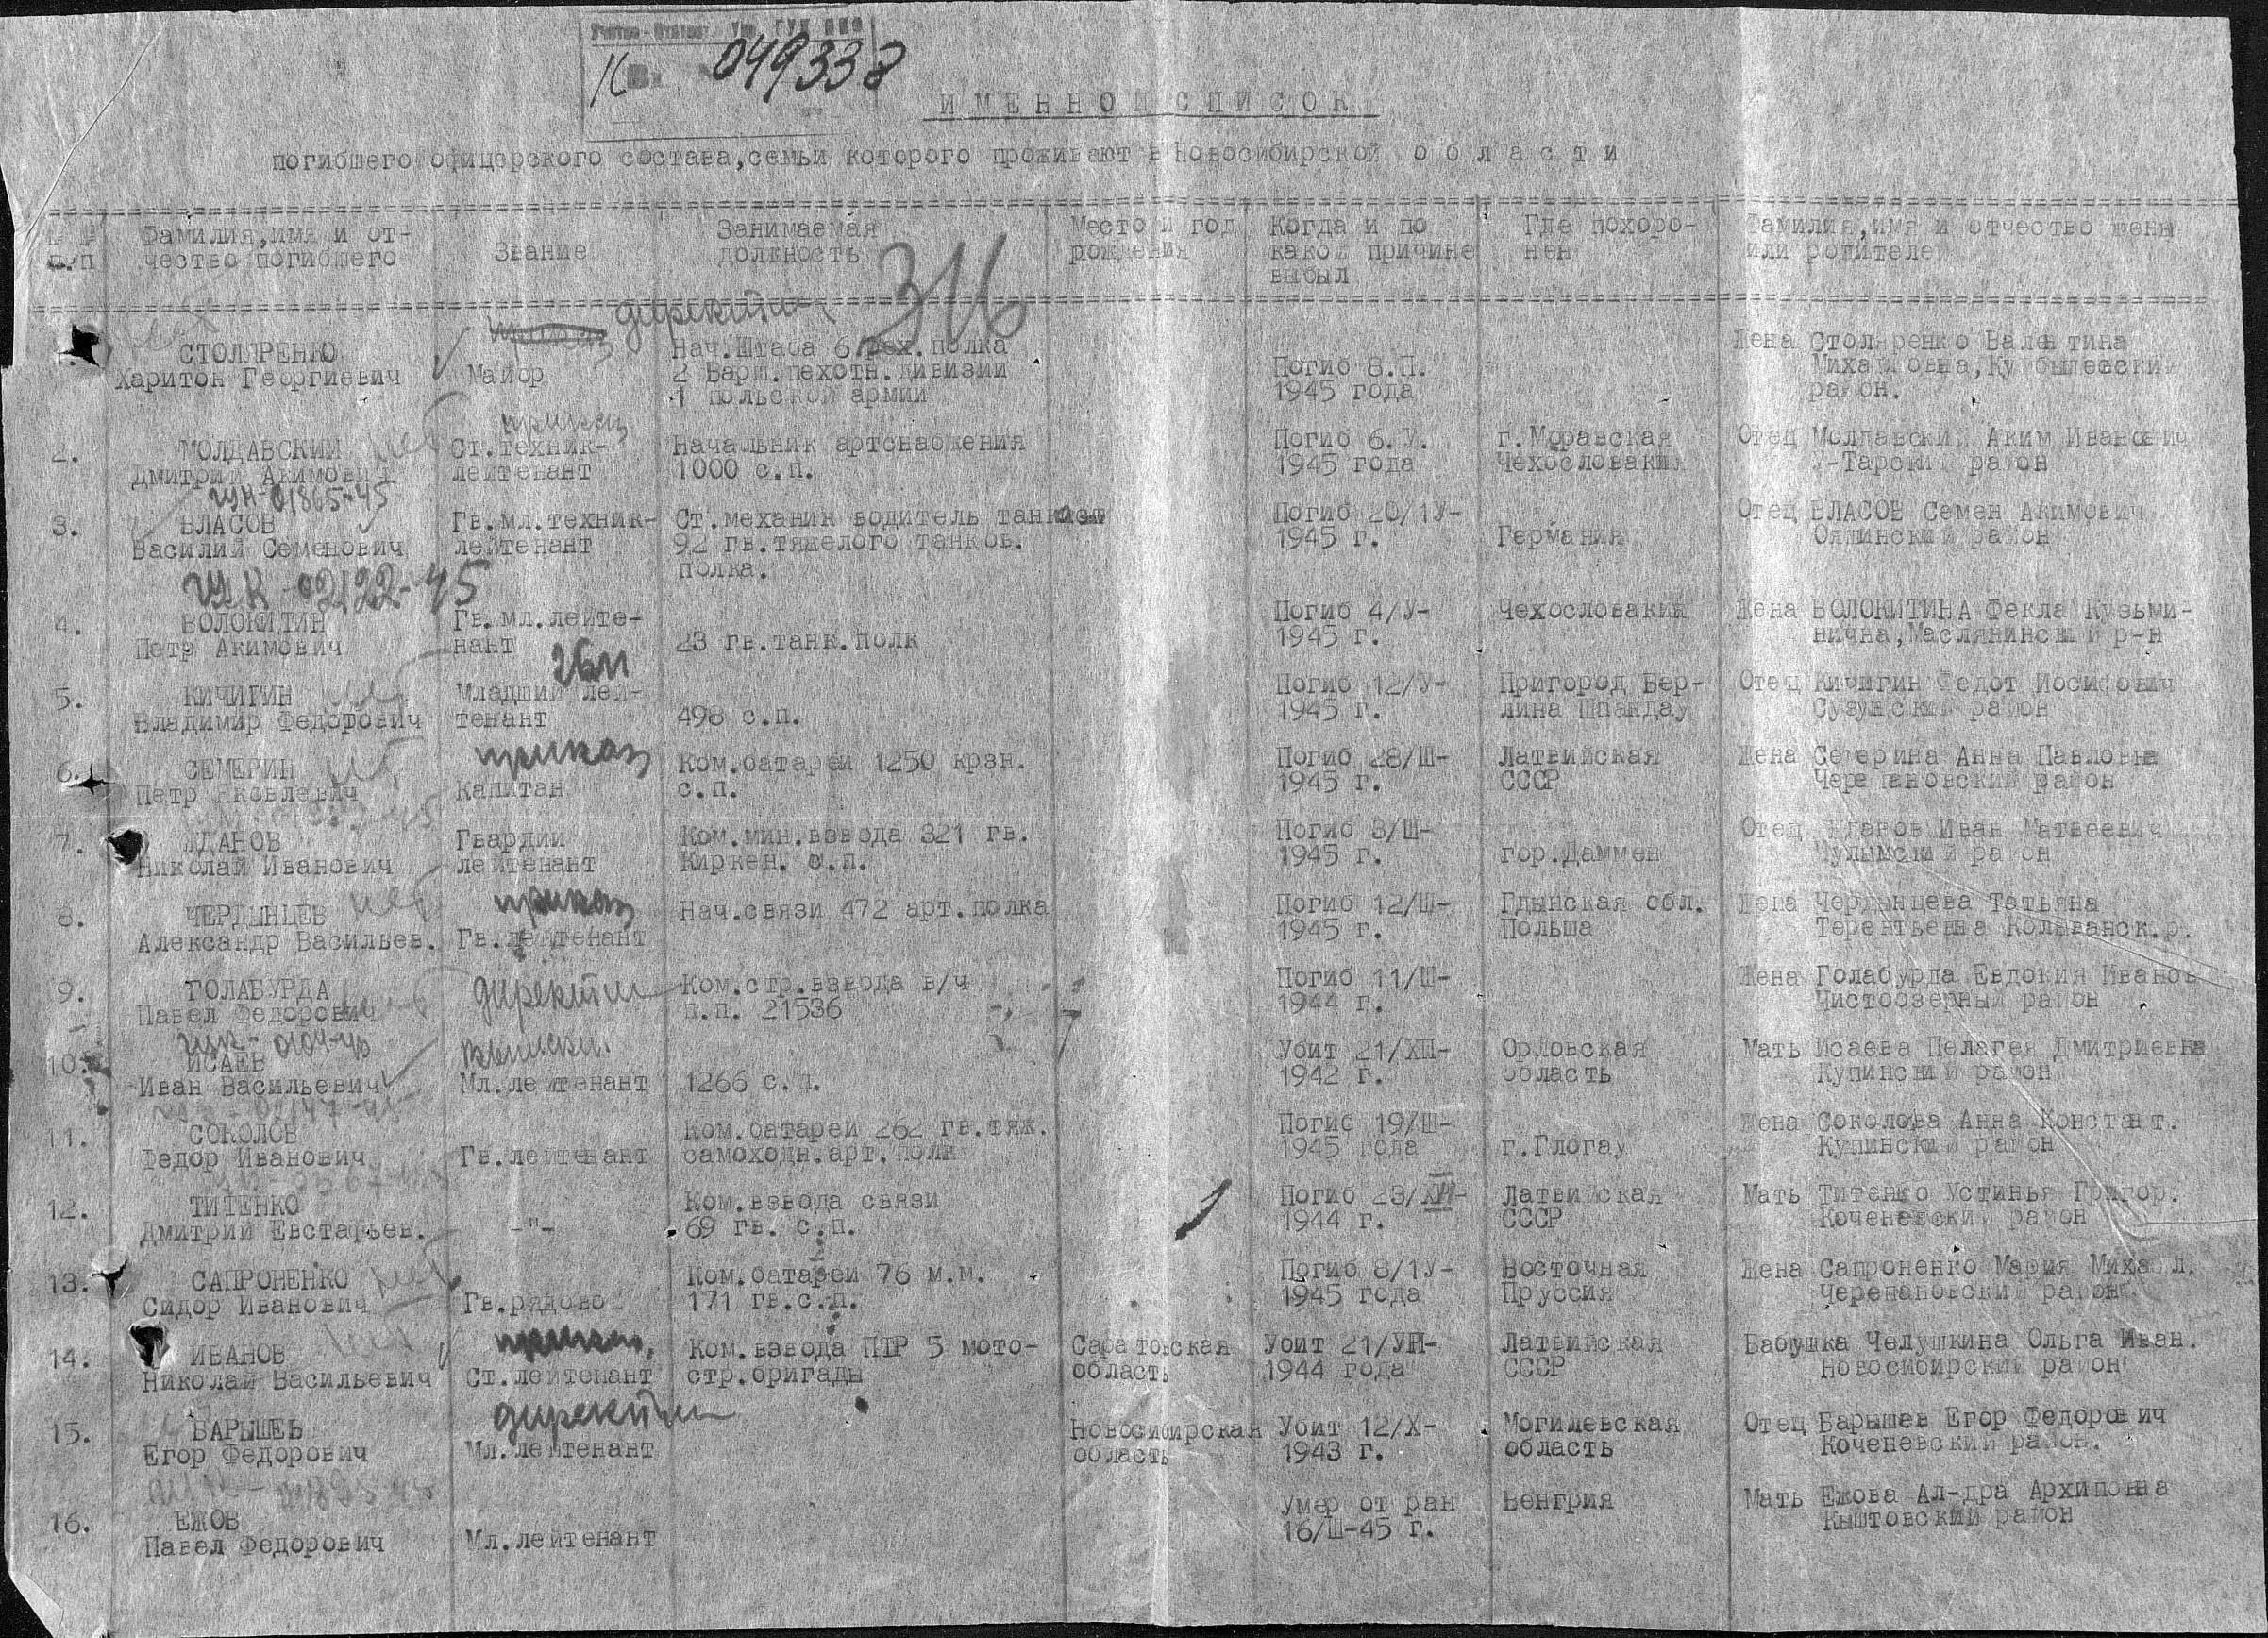 049338
ИМЕННОЙ СПИСОК
погибшего офицерского состава, семьи которого проживают в Новосибирской области
№ № п/п
Фамилия, имя и от-
чество погибшего
Звание
Занимаемая
должность
Место и год
рождения
Когда и по
какой причине
выбыл
Где похоро-
нен
Фамилия, имя и отчество жены
или родителей
316
директива
1. СТОЛЯРЕНКО
Харитон Георгиевич
Майор
Нач.Штаба 6 пех.полка
2 Варш.пехотн.дивизии
1 польской армии
Погиб 8.П.
1945 года
Жена Столяренко Валентина
Михайловна, Куйбышевский
район.
приказ
2. МОЛДАВСКИЙ
Дмитрий Акимович
Ст.техник-
лейтенант
Начальник артснабжения
1000 с.п.
Погиб 6.У.
1945 года
г.Моравская
Чехословакия
Отец Молдавский Аким Иванович
У-Тарский район
01865-45
3. ВЛАСОВ
Василий Семенович
Гв.мл.техник-
лейтенант
Ст.механик водитель танков
92 гв.тяжелого танков.
полка.
Погиб 20/1У-
1945 г.
Германия
Отец ВЛАСОВ Семен Акимович
Ояшинский район
ГУК-02122-45
4. ВОЛОКИТИН
Петр Акимович
Гв.мл.лейте-
нант
23 гв.танк.полк
Погиб 4/У-
1945 г.
Чехословакия
Жена ВОЛОКИТИНА Фекла Кузьми-
нична, Маслянинский р-н
5. КИЧИГИН
Владимир Федотович
Младший лей-
тенант
498 с.п.
Погиб 12/У-
1945 г.
Пригород Бер-
лина Шпандау
Отец Кичигин Федот Иосифович
Сузунский район
приказ
6. СЕМЕРИН
Петр Яковлевич
Капитан
Ком.батареи 1250 крзн.
с.п.
Погиб 28/Ш-
1945 г.
Латвийская
СССР
Жена Семерина Анна Павловна
Черепановский район
7. ЖДАНОВ
Николай Иванович
Гвардии
лейтенант
Ком.мин.взвода 321 гв.
Киркен. с.п.
Погиб 8/Ш-
1945 г.
гор.Даммен
Отец Жданов Иван Матвеевич
Чулымский район
приказ
8. ЧЕРДЫНЦЕВ
Александр Васильев.
Гв.лейтенант
Нач.связи 472 арт.полка
Погиб 12/Ш-
1945 г.
Гдынская обл.
Польша
Жена Чердынцева Татьяна
Терентьевна Колыванск.р.
директива
9. ГОЛАБУРДА
Павел Федорович
Ком.стр.взвода в/ч
п.п. 21536
Погиб 11/Ш-
1944 г.
Жена Голабурда Евдокия Иванов
Чистоозерный район
10. ИСАЕВ
Иван Васильевич
Мл.лейтенант
1266 с.п.
Убит 21/ХП-
1942 г.
Орловская
область
Мать Исаева Пелагея Дмитриевна
Купинский район
11. СОКОЛОВ
Федор Иванович
Гв.лейтенант
Ком.батареи 262 гв.тяж.
самоходн.арт.полк
Погиб 19/Ш-
1945 года
г.Глогау
Жена Соколова Анна Констант.
Купинский район
12. ТИТЕНКО
Дмитрий Евстафьев.
-"-
Ком.взвода связи
69 гв. с.п.
Погиб 23/XII-
1944 г.
Латвийская
СССР
Мать Титенко Устинья Григор.
Коченевский район
13. САПРОНЕНКО
Сидор Иванович
Гв.рядовой
Ком.батареи 76 м.м.
171 гв.с.п.
Погиб 8/1У-
1945 года
Восточная
Пруссия
Жена Сапроненко Мария Михайл.
Черепановский район
приказ
14. ИВАНОВ
Николай Васильевич
Ст.лейтенант
Ком.взвода ПТР 5 мото-
стр.бригады
Саратовская
область
Убит 21/УП-
1944 года
Латвийская
СССР
Бабушка Челушкина Ольга Иван.
Новосибирский район
директива
15. БАРЫШЕВ
Егор Федорович
Мл.лейтенант
Новосибирская
область
Убит 12/Х-
1943 г.
Могилевская
область
Отец Барышев Егор Федорович
Коченевский район.
16. ЕЖОВ
Павел Федорович
Мл.лейтенант
Умер от ран
16/Ш-45 г.
Венгрия
Мать Ежова Ал-дра Архиповна
Кыштовский район